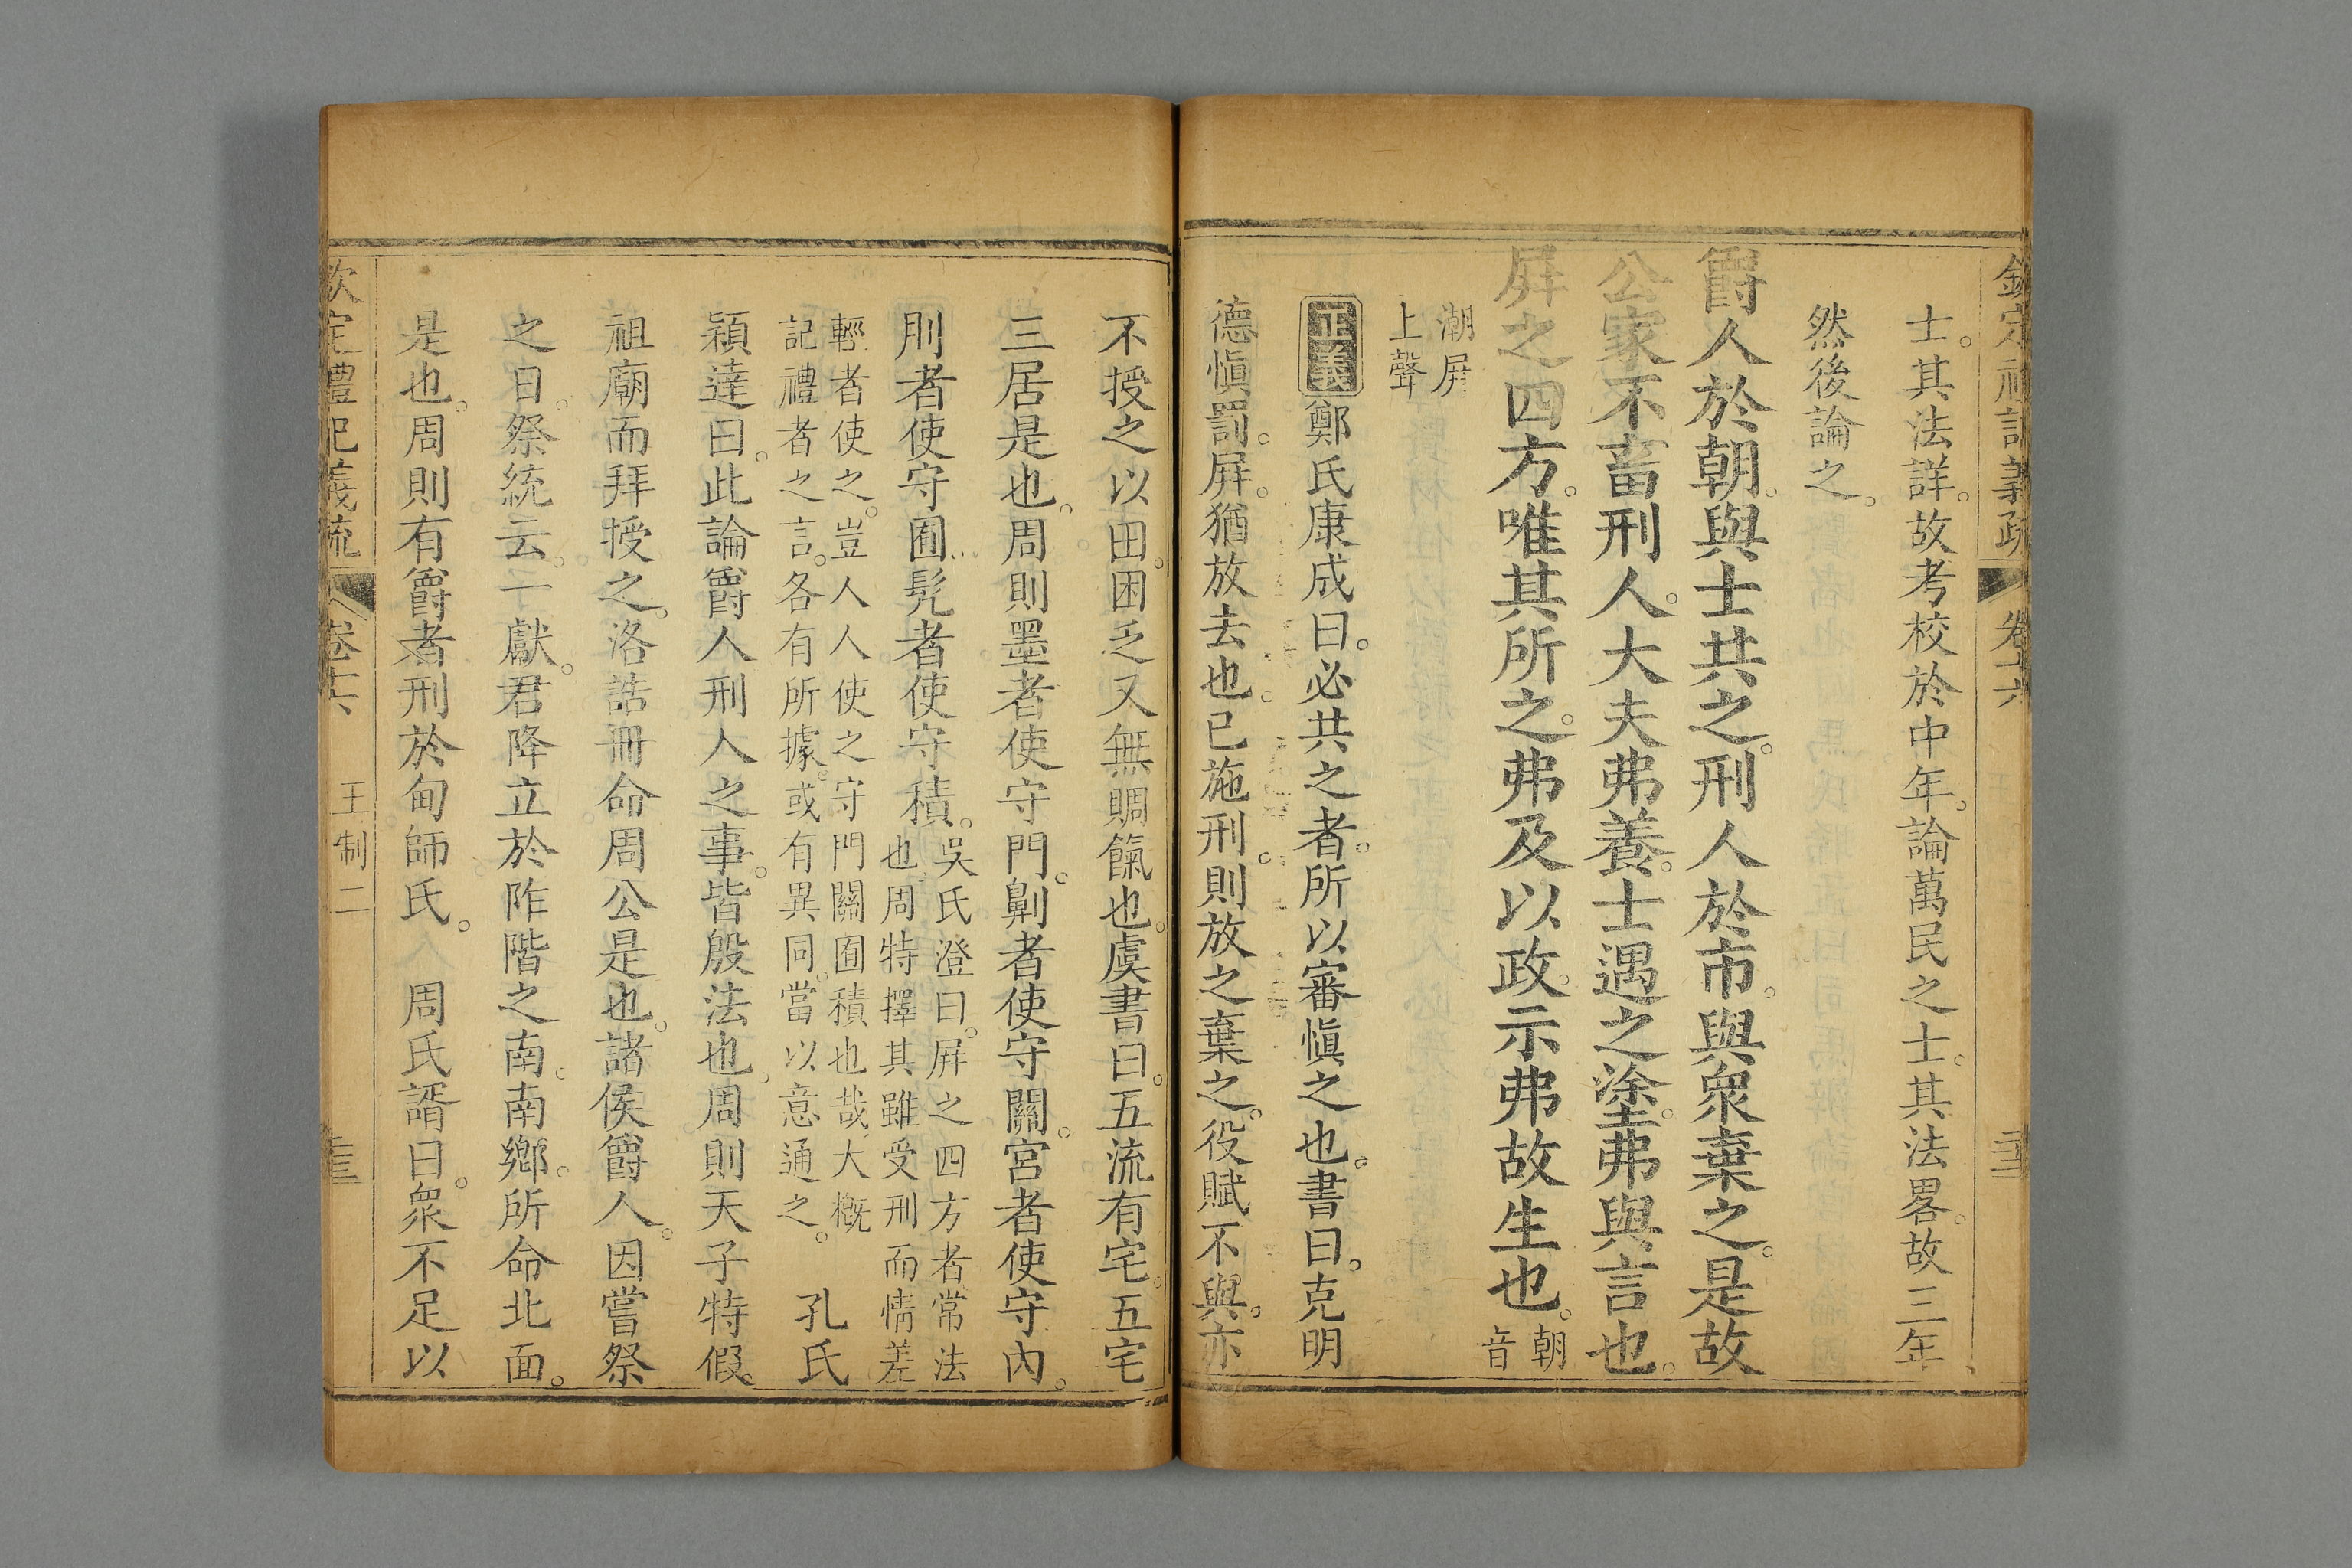 欽定禮記義疏 卷十六
士。其法詳。故考校於中年。論萬民之士。其法畧。故三年
然後論之。
爵人於朝。與士共之。刑人於市。與衆棄之。是故
公家不畜刑人。大夫弗養。士遇之塗。弗與言也。
屏之四方。唯其所之。弗及以政。示弗故生也。朝音
潮屏
上聲
正義鄭氏康成曰。必共之者。所以審愼之也。書曰。克明
德愼罰。屏。猶放去也。已施刑。則放之棄之。役賦不與。亦
不授之以田。困乏又無賙餼也。虞書曰。五流有宅。五宅
三居是也。周則墨者使守門。劓者使守關。宮者使守內。
刖者使守囿。髡者使守積。吳氏澄曰。屏之四方者常法
也。周特擇其雖受刑而情差
輕者使之。豈人人使之守門關囿積也哉。大槪
記禮者之言。各有所據。或有異同。當以意通之。 孔氏
穎達曰。此論爵人刑人之事。皆殷法也。周則天子特假。
祖廟而拜授之。洛誥冊命周公是也。諸侯爵人。因嘗祭
之日。祭統云。一獻。君降立於阼階之南。南鄉。所命北面。
是也。周則有爵者刑於甸師氏。 周氏諝曰。衆不足以
欽定禮記義疏 卷十六 王制二